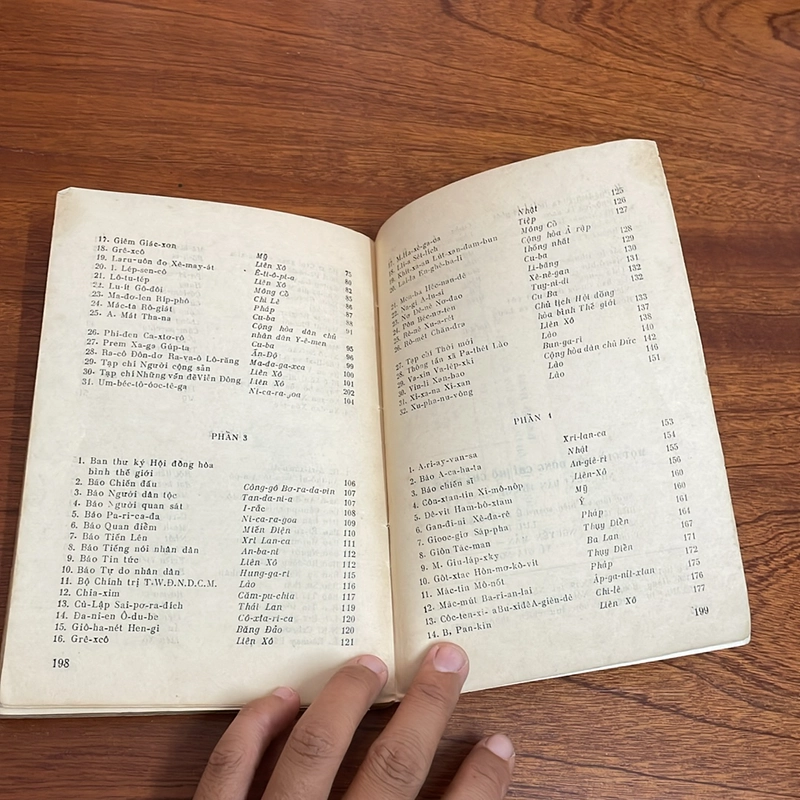 17. Giêm Giắc-xơn Mỹ 75
18. Grê-xcô Liên Xô 80
19. Laru-uôn đo Xê-may-át Ê-ti-ô-pi-a 82
20. I. Lép-sen-cô Liên Xô 85
21. Lô-tu-tép Mông Cổ 86
22. Lu-ít Gô-đôi Chi Lê 86
23. Ma-đơ-len Ríp-phô Pháp 88
24. Mác-ta Rô-giát Cu-ba 91
25. A. Mát Tha-na Cộng hòa dân chủ
nhân dân Y-ê-men 95
26. Phi-đen Ca-xtơ-rô Cu-ba 96
27. Prem Xa-ga Gúp-ta Ấn-Độ 99
28. Ra-cô Đôn-dơ Ra-va-ô Lô-răng Ma-đa-ga-xca 100
29. Tạp chí Người cộng sản Liên Xô 101
30. Tạp chí Những vấn đề Viễn Đông Liên Xô 202
31. Um-béc-tô-óoc-tê-ga Ni-ca-ra-goa 104
PHẦN 3
1. Ban thư ký Hội đồng hòa
bình thế giới 106
2. Báo Chiến đấu Công-gô Bơ-ra-da-vin 107
3. Báo Người dân tộc Tan-da-ni-a 107
4. Báo Người quan sát I-rắc 108
5. Báo Pa-ri-ca-đa Ni-ca-ra-goa 109
6. Báo Quan điểm Miến Điện 110
7. Báo Tiến Lên Xri Lan-ca 111
8. Báo Tiếng nói nhân dân An-ba-ni 112
9. Báo Tin tức Liên Xô 112
10. Báo Tự do nhân dân Hung-ga-ri 115
11. Bộ Chính trị T.W.Đ.N.D.C.M. Lào 116
12. Chia-xim Căm-pu-chia 117
13. Củ-Lập Sai-pơ-ra-đích Thái Lan 119
14. Đa-ni-en Ô-du-be Cô-xta-ri-ca 120
15. Giô-ha-nét Hen-gi Băng Đảo 120
16. Grê-xcô Liên Xô 121
198
17. M.Ha-xê-ga-oa Nhật 125
18. I-li-a Séi-lích Tiệp 126
19. Khít-xoan Lút-xan-đam-bun Mông Cổ 127
20. Lai-la En-ghê-ba-li Cộng hòa Ả rập
thống nhất 128
Cu-ba 129
Li-băng 130
Xê-nê-gan 131
Tuy-ni-di 132
Cu Ba 132
26. Rô-mét Chan-đra Chủ tịch Hội đồng
hòa bình Thế giới 133
27. Tạp chí Thời mới Liên Xô 137
28. Thông tấn xã Pa-thét Lào Lào 138
29. Va-xin Va-lép-xki Bun-ga-ri 140
30. Vin-li Xan-bao Cộng hòa dân chủ Đức 142
31. Xi-xa-na Xi-xan Lào 146
32. Xu-pha-nu-vông Lào 151
PHẦN 4
1. A-ri-ay-van-sa Xri-lan-ca 153
2. Báo A-ca-ha-ta Nhật 154
3. Báo chiến sĩ An-giê-ri 155
4. Côn-xtan-tin Xi-mô-nốp Liên-Xô 156
5. Dê-vít Ham-bớc-xtam Mỹ 160
6. Gan-đi-ni Xê-da-rê Ý 160
7. Giooc-giơ Sáp-pha Pháp 161
8. Giôn Tác-man Thụy Điển 164
9. M. Giu-láp-xky Ba Lan 167
10. Gôt-xtac Hôn-mơ-kô-vit Thụy Điển 171
11. Mác-tin Mô-nốt Pháp 172
12. Mác-mút Ba-ri-an-lai Áp-ga-nit-xtan 175
Chi-lê 176
14. B. Pan-kin Liên Xô 177
199